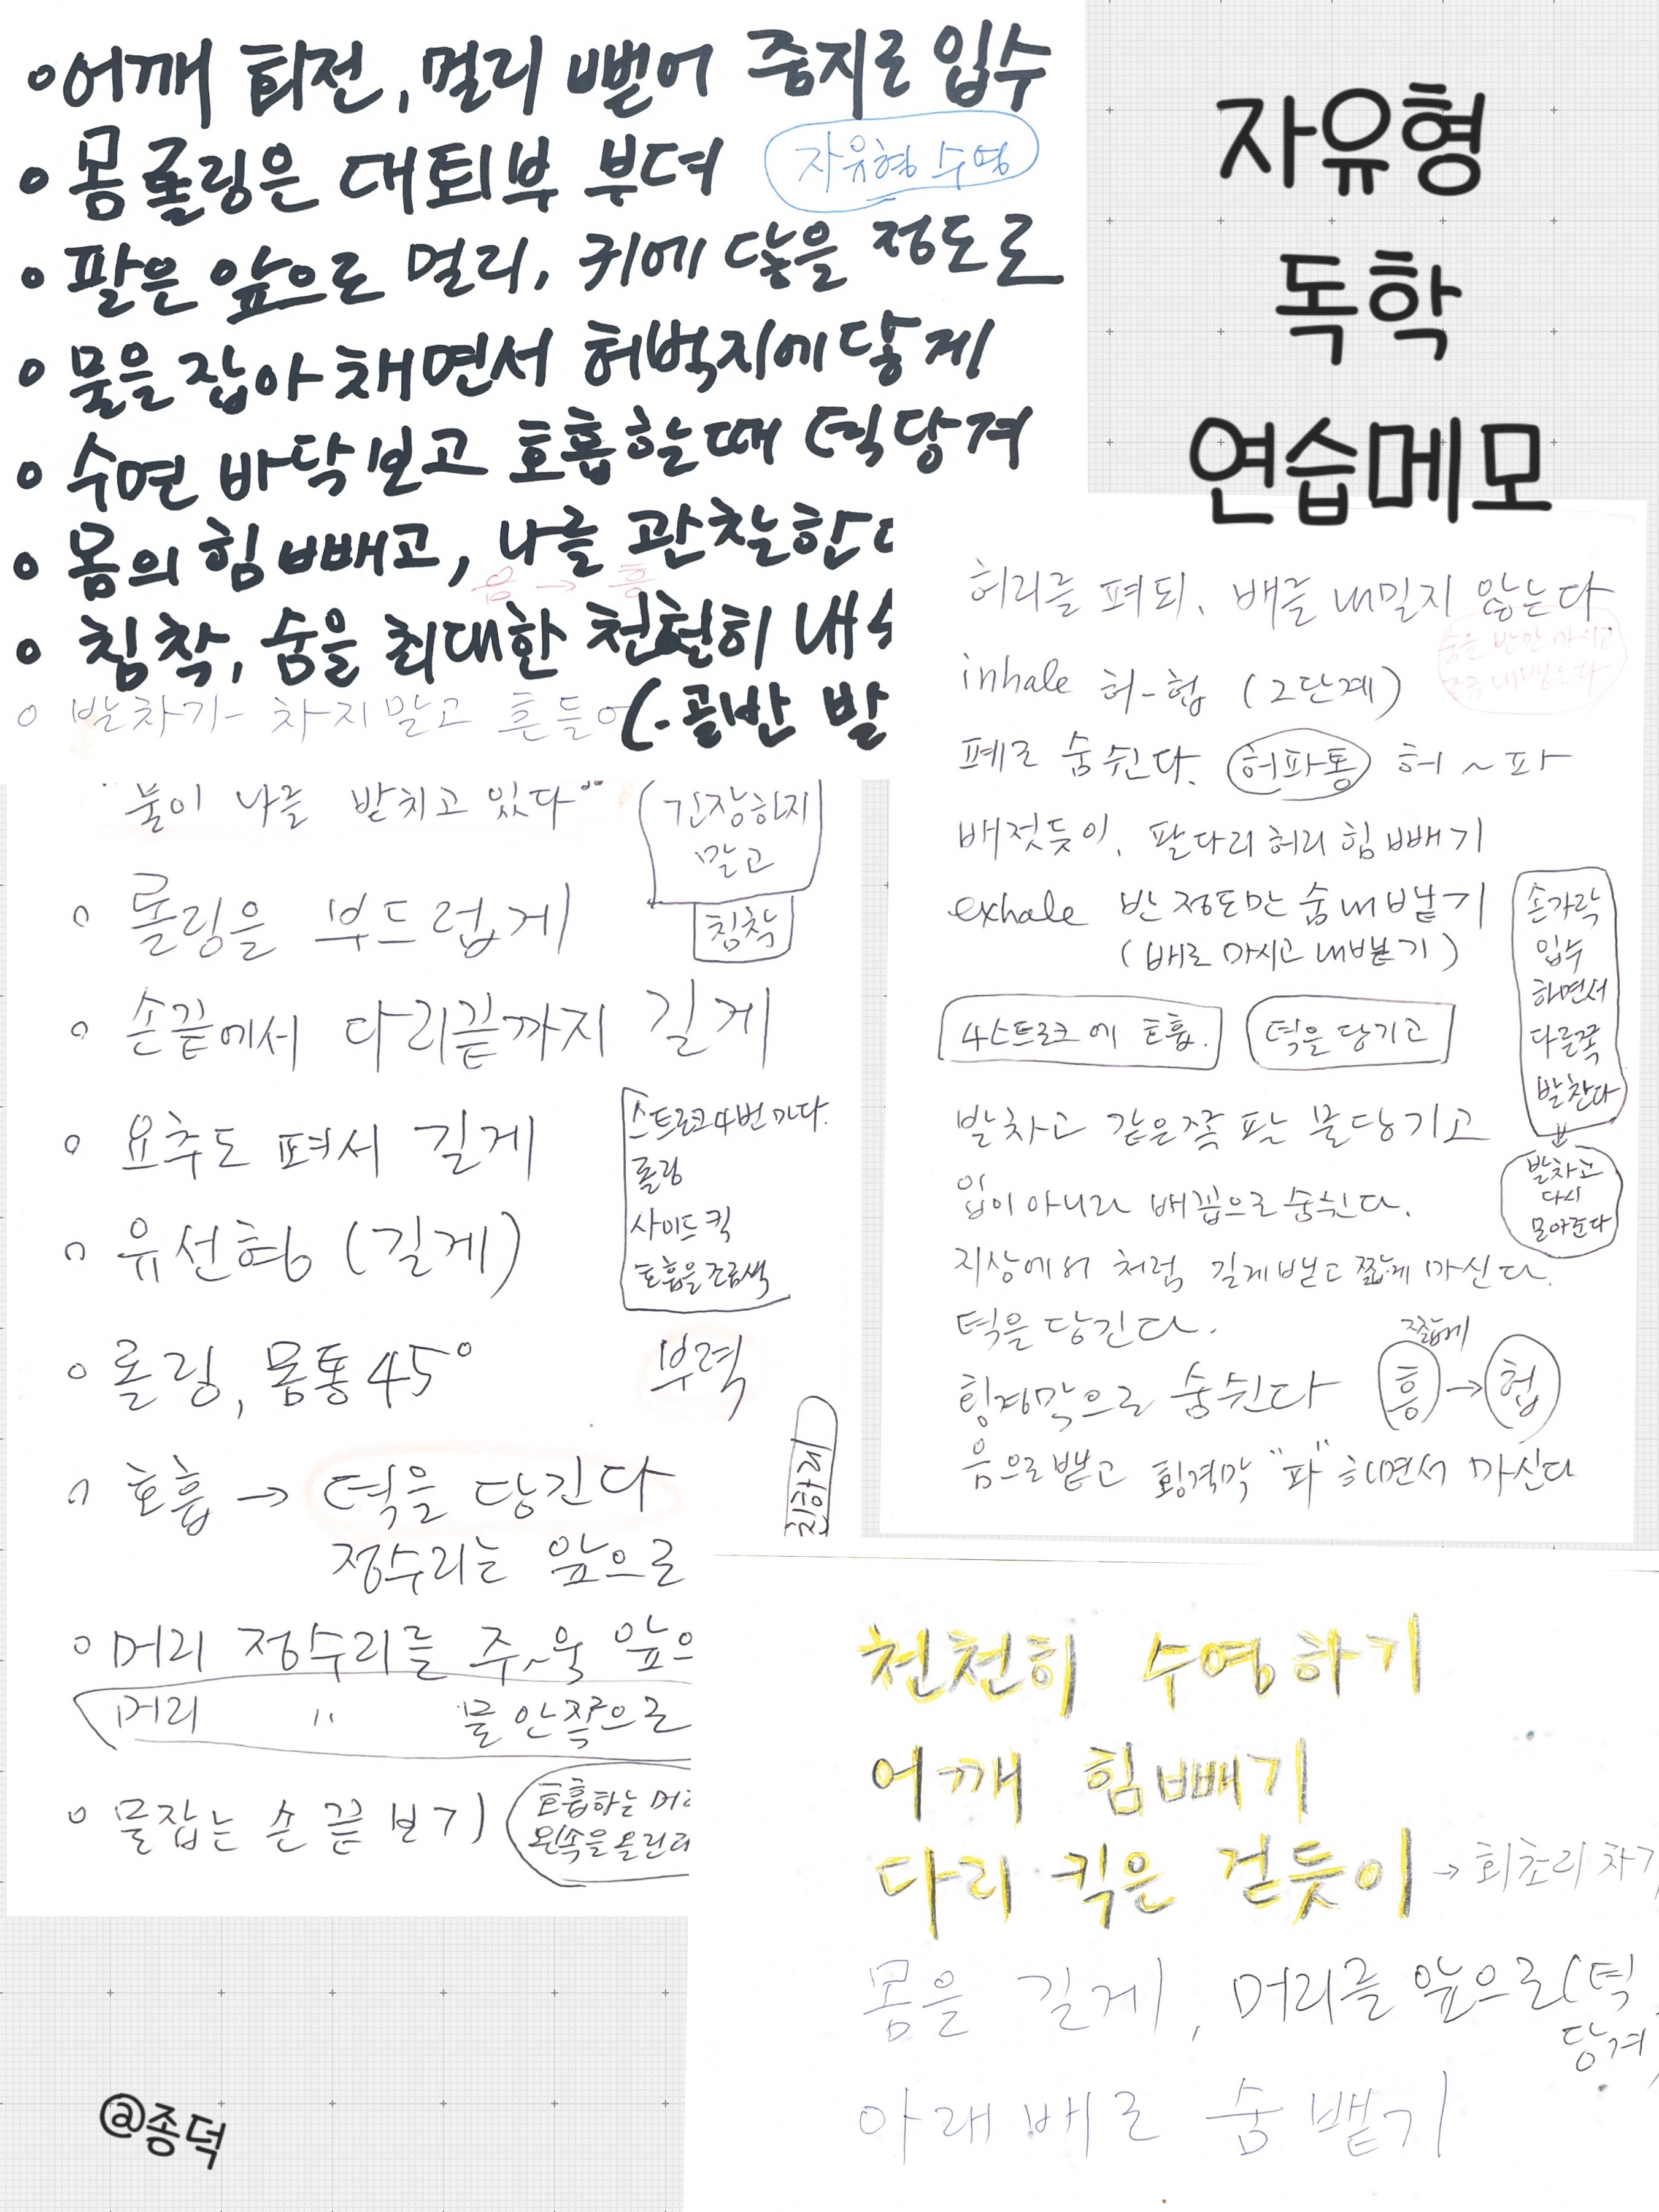 자유형
독학
연습메모
•어깨 회전, 멀리 뻗어 중지로 입수
• 몸 롤링은 대퇴부 부터
자유형 수영
• 팔은 앞으로 멀리, 귀에 닿을 정도로
• 물을 잡아 채면서 허벅지에 닿게
• 수면 바닥보고 호흡할때 턱당겨
• 몸의 힘 빼고, 나를 관찰한다
음 → 흥
• 침착, 숨을 최대한 천천히 내
◦ 발차기- 차지말고 흔들어
(-골반 발
"물이 나를 받치고 있다"
긴장하지
말고
침착
◦ 롤링을 부드럽게
◦ 손끝에서 다리끝까지 길게
◦ 요추도 펴서 길게
스트로크4번마다.
롤링
사이드 킥
호흡을
◦ 유선형 (길게)
◦ 롤링, 몸통 45°
부력
◦ 호흡 → 턱을 당긴다
정수리는 앞으로
◦ 머리 정수리를 주~욱 앞으
머리 〃 물 안쪽으로
◦ 물잡는 손 끝 보기
호흡하는 머리
허리를 펴되, 배를 내밀지 않는다
숨을 반만 마시고
조금 내뱉는다
inhale 허-헙 (2단계)
폐로 숨쉰다. 허파통 허~파
배젓듯이, 팔다리허리 힘빼기
exhale 반정도만 숨내뱉기
(배로 마시고 내뱉기)
4스트로크에 호흡. 턱을 당기고
손가락
입수
하면서
다른쪽
발찬다
발차고
다시
모아준다
발차고 같은쪽 팔 물당기고
입이 아니라 배꼽으로 숨쉰다.
지상에서 처럼 길게뱉고 짧게 마신다.
턱을 당긴다.
짧게
횡격막으로 숨쉰다 흥→헙
음으로 뱉고 횡격막 "파" 하면서 마신다
천천히 수영하기
어깨 힘빼기
다리 킥은 걷듯이 → 회초리 차기
몸을 길게, 머리를 앞으로(턱
당겨)
아래배로 숨 뱉기
@종덕